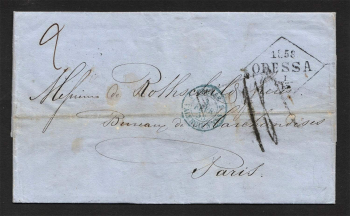 2
1858
ODESSA
Messieurs de Rothschild frères
Bureaux de Marchandises
Paris.